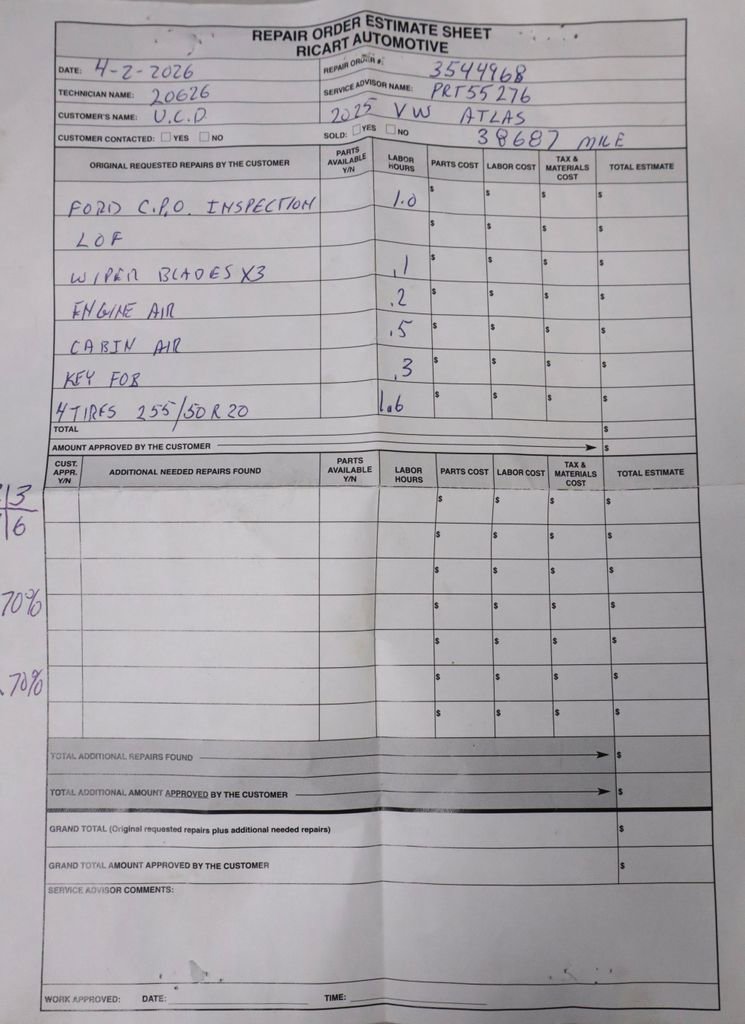 REPAIR ORDER ESTIMATE SHEET
RICART AUTOMOTIVE
DATE: 4-2-2026 REPAIR ORDER #: 3544968
TECHNICIAN NAME: 20626 SERVICE ADVISOR NAME: PRT55276
CUSTOMER'S NAME: U.C.D 2025 VW ATLAS
CUSTOMER CONTACTED: YES NO SOLD: YES NO 38687 MILE
ORIGINAL REQUESTED REPAIRS BY THE CUSTOMER PARTS AVAILABLE Y/N LABOR HOURS PARTS COST LABOR COST TAX & MATERIALS COST TOTAL ESTIMATE
FORD C.P.O. INSPECTION 1.0 $ $ $ $
LOF $ $ $ $
WIPER BLADES X3 .1 $ $ $ $
ENGINE AIR .2 $ $ $ $
CABIN AIR .5 $ $ $ $
KEY FOB .3 $ $ $ $
4 TIRES 255/50R20 1.6 $ $ $ $
TOTAL $
AMOUNT APPROVED BY THE CUSTOMER $
CUST. APPR. Y/N ADDITIONAL NEEDED REPAIRS FOUND PARTS AVAILABLE Y/N LABOR HOURS PARTS COST LABOR COST TAX & MATERIALS COST TOTAL ESTIMATE
13 $ $ $ $
16 $ $ $ $
$ $ $ $
70% $ $ $ $
$ $ $ $
70% $ $ $ $
$ $ $ $
TOTAL ADDITIONAL REPAIRS FOUND $
TOTAL ADDITIONAL AMOUNT APPROVED BY THE CUSTOMER $
GRAND TOTAL (Original requested repairs plus additional needed repairs) $
GRAND TOTAL AMOUNT APPROVED BY THE CUSTOMER $
SERVICE ADVISOR COMMENTS:
WORK APPROVED: DATE: TIME: